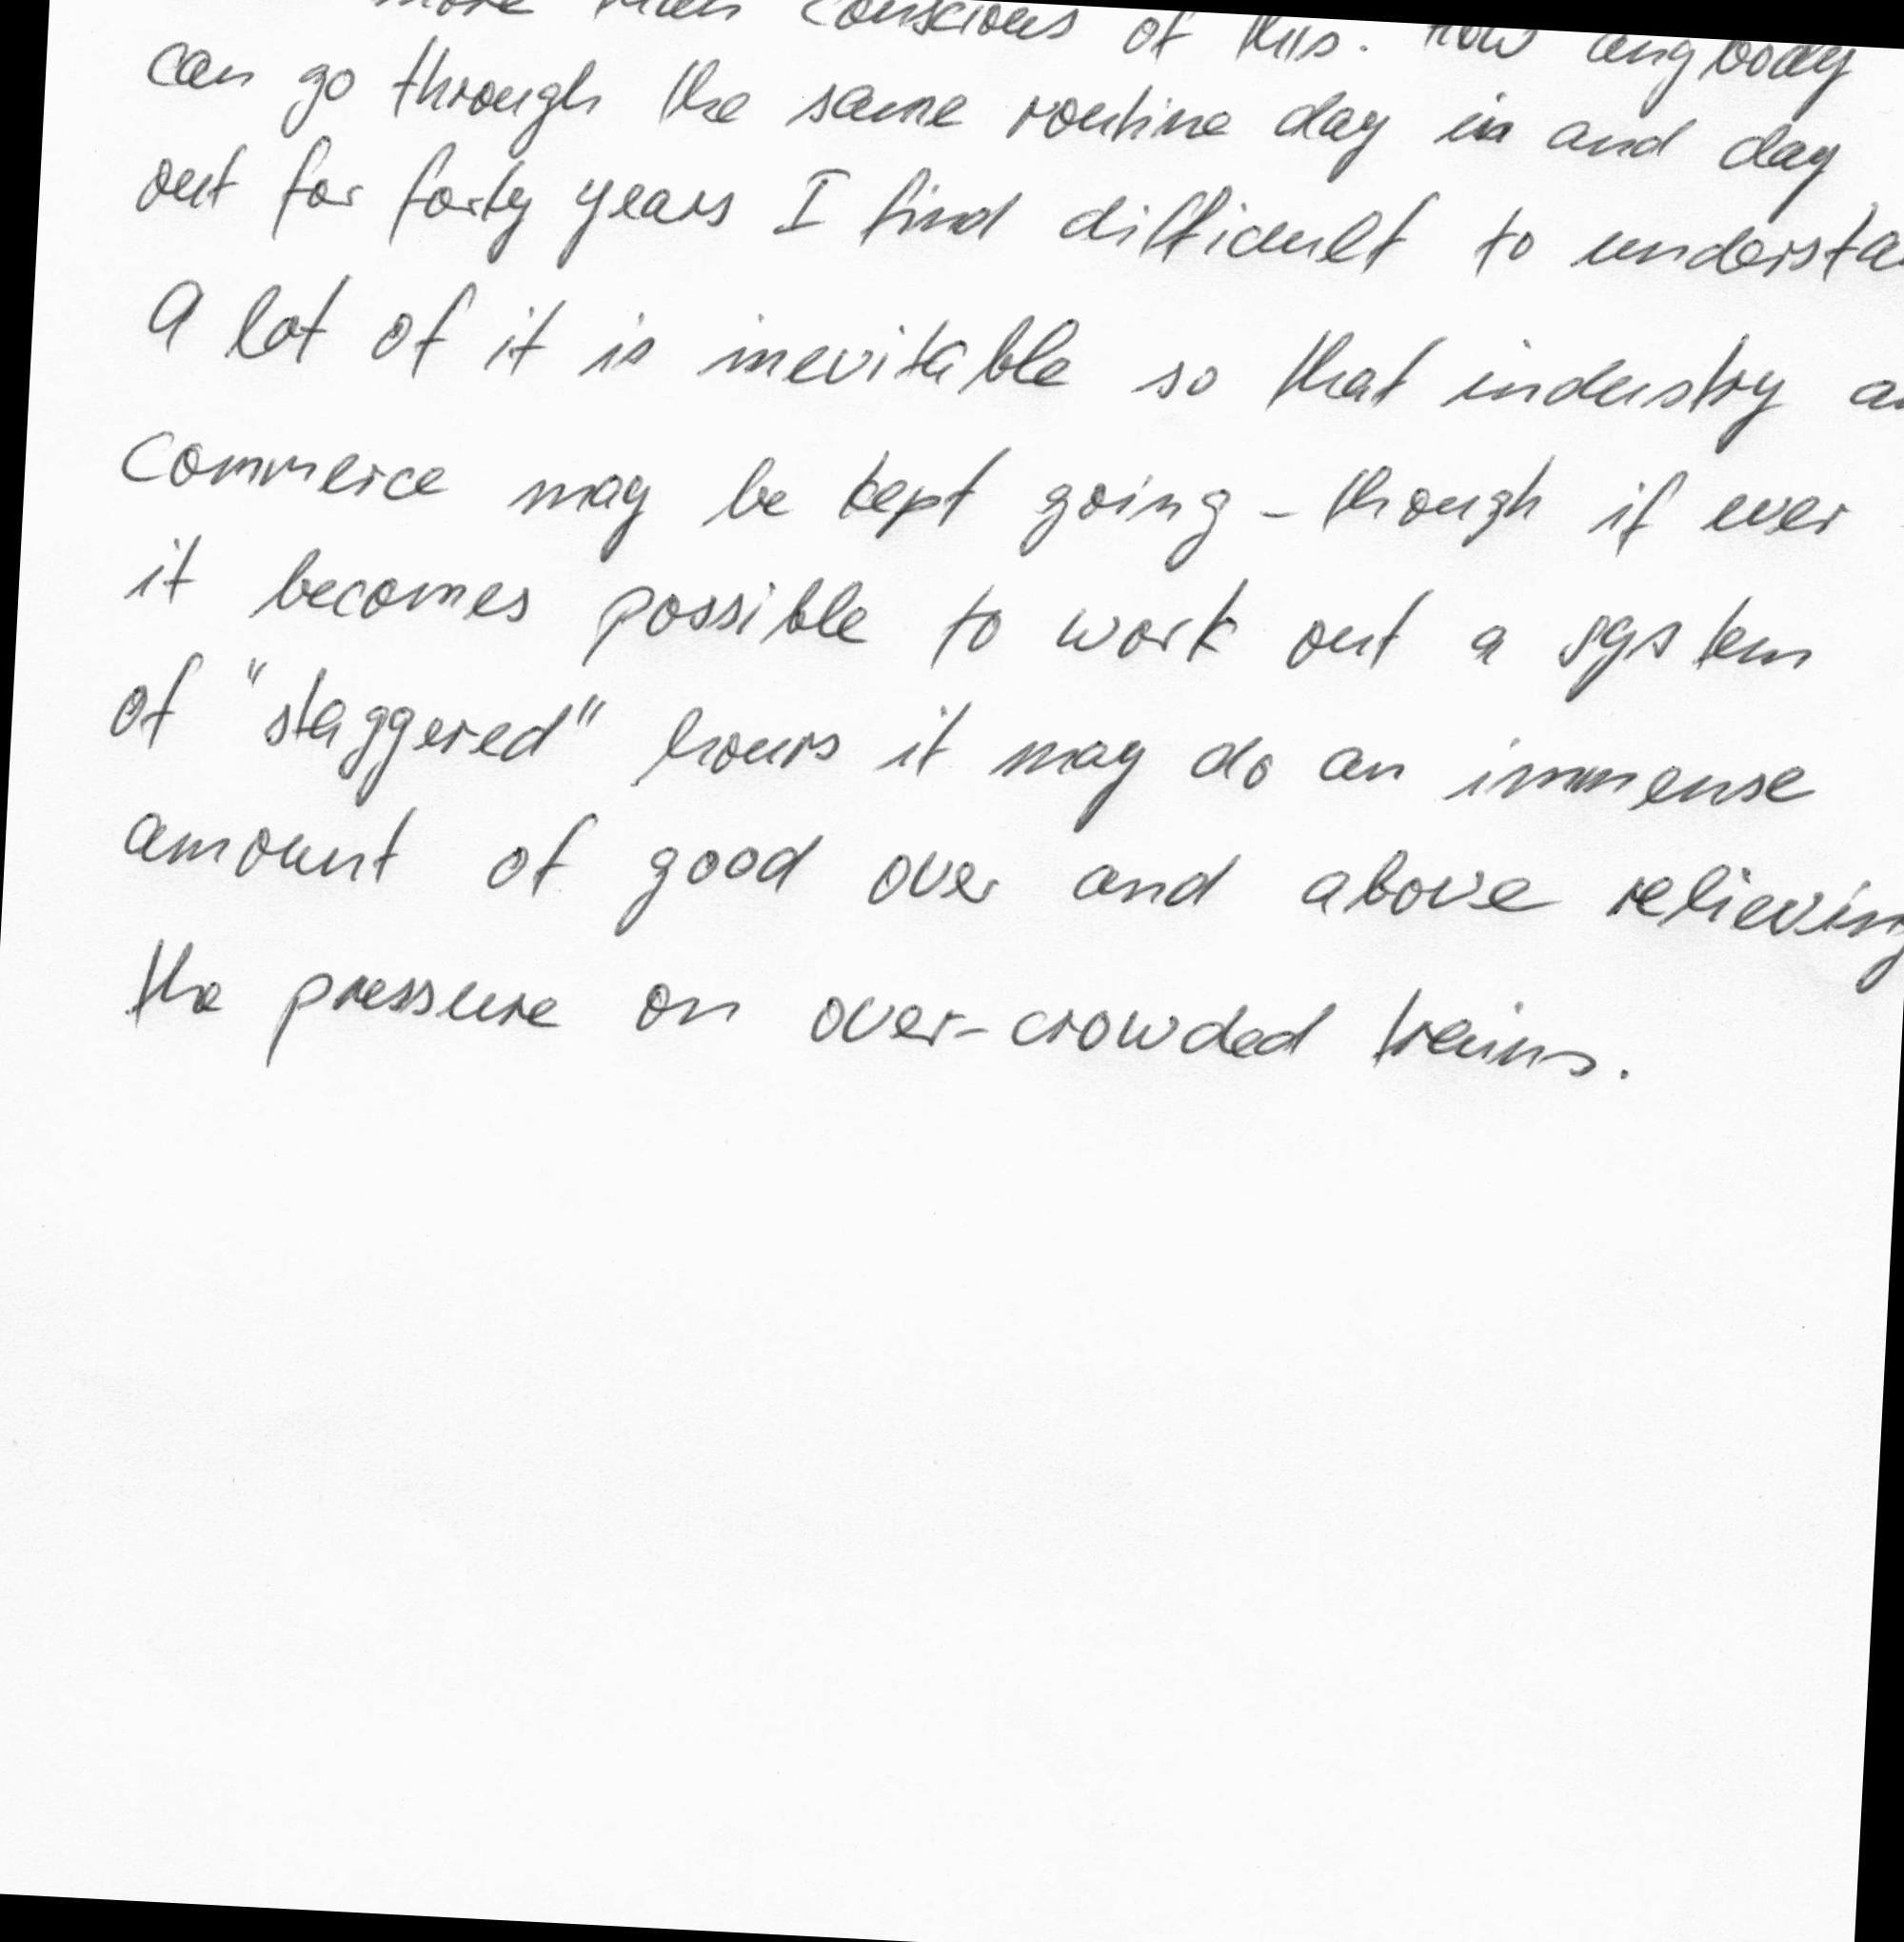 more than conscious of this. How anybody
can go through the same routine day in and day
out for forty years I find difficult to
A lot of it is inevitable so that industry
commerce may be kept going - though if ever
it becomes possible to work out a system
of "staggered" hours it may do an immense
amount of good over and above relieving
the pressure on over-crowded trains.